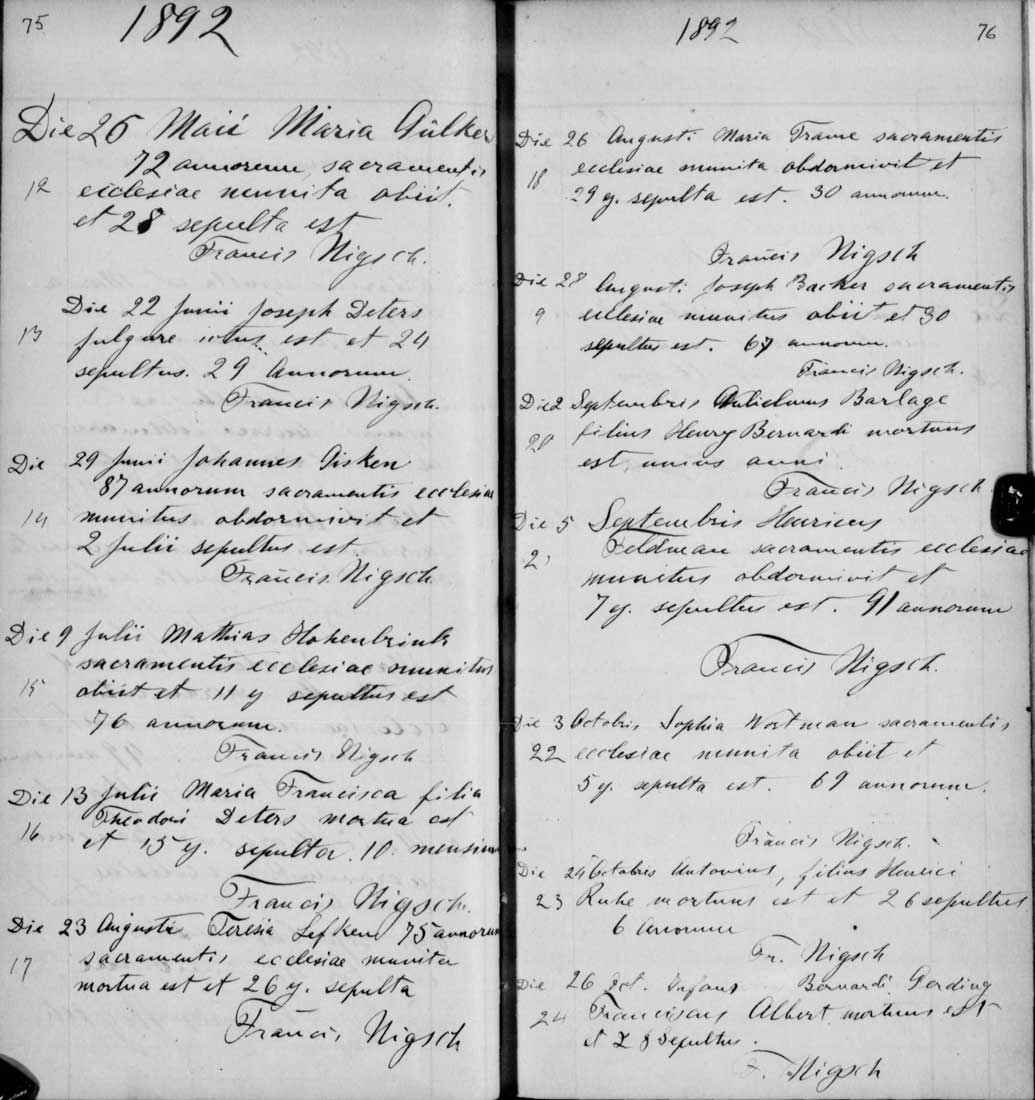 75
1892
Die 26 Maii Maria Gülker
72 annorum, sacramentis
12 ecclesiae munita obiit.
et 28 sepulta est
Francis Nigsch.
Die 22 Junii Joseph Deters
13 fulgure ictus est et 24
sepultus. 29 Annorum.
Francis Nigsch.
Die 29 Junii Johannes Gisken
87 annorum sacramentis ecclesiae
14 munitus obdormivit et
2 Julii sepultus est.
Francis Nigsch
Die 9 Julii Mathias Hokenbrink
sacramentis ecclesiae munitus
15 obiit et 11 ej sepultus est
76 annorum.
Francis Nigsch
Die 13 Julii Maria Francisca filia
16 Theodori Deters mortua est
et 15 ej. sepulta. 10. mensium
Francis Nigsch.
Die 23 Augusti Teresia Lefken 75 annorum
17 sacramentis ecclesiae munita
mortua est et 26 ej. sepulta
Francis Nigsch
1892
76
Die 26 Augusti Maria Trame sacramentis
18 ecclesiae munita obdormivit et
29 ej. sepulta est. 30 annorum.
Francis Nigsch
Die 28 Augusti Joseph Backer sacramentis
9 ecclesiae munitus obiit et 30
sepultus est. 67 annorum.
Francis Nigsch.
Die 2 Septembris Gulielmus Barlage
20 filius Henry Bernardi mortuus
est, unius anni.
Francis Nigsch.
Die 5 Septembris Henricus
21 Feldman sacramentis ecclesiae
munitus obdormivit et
7 ej. sepultus est. 91 annorum
Francis Nigsch.
Die 3 Octobris Sophia Wortman sacramentis
22 ecclesiae munita obiit et
5 ej. sepulta est. 69 annorum.
Francis Nigsch.
Die 24 Octobris Antonius, filius Henrici
23 Ruhe mortuus est et 26 sepultus
6 annorum
Fr. Nigsch
Die 26 Oct. Infans Bernardi Gerding
24 Franciscus Albert mortuus est
et 28 Sepultus.
F. Nigsch